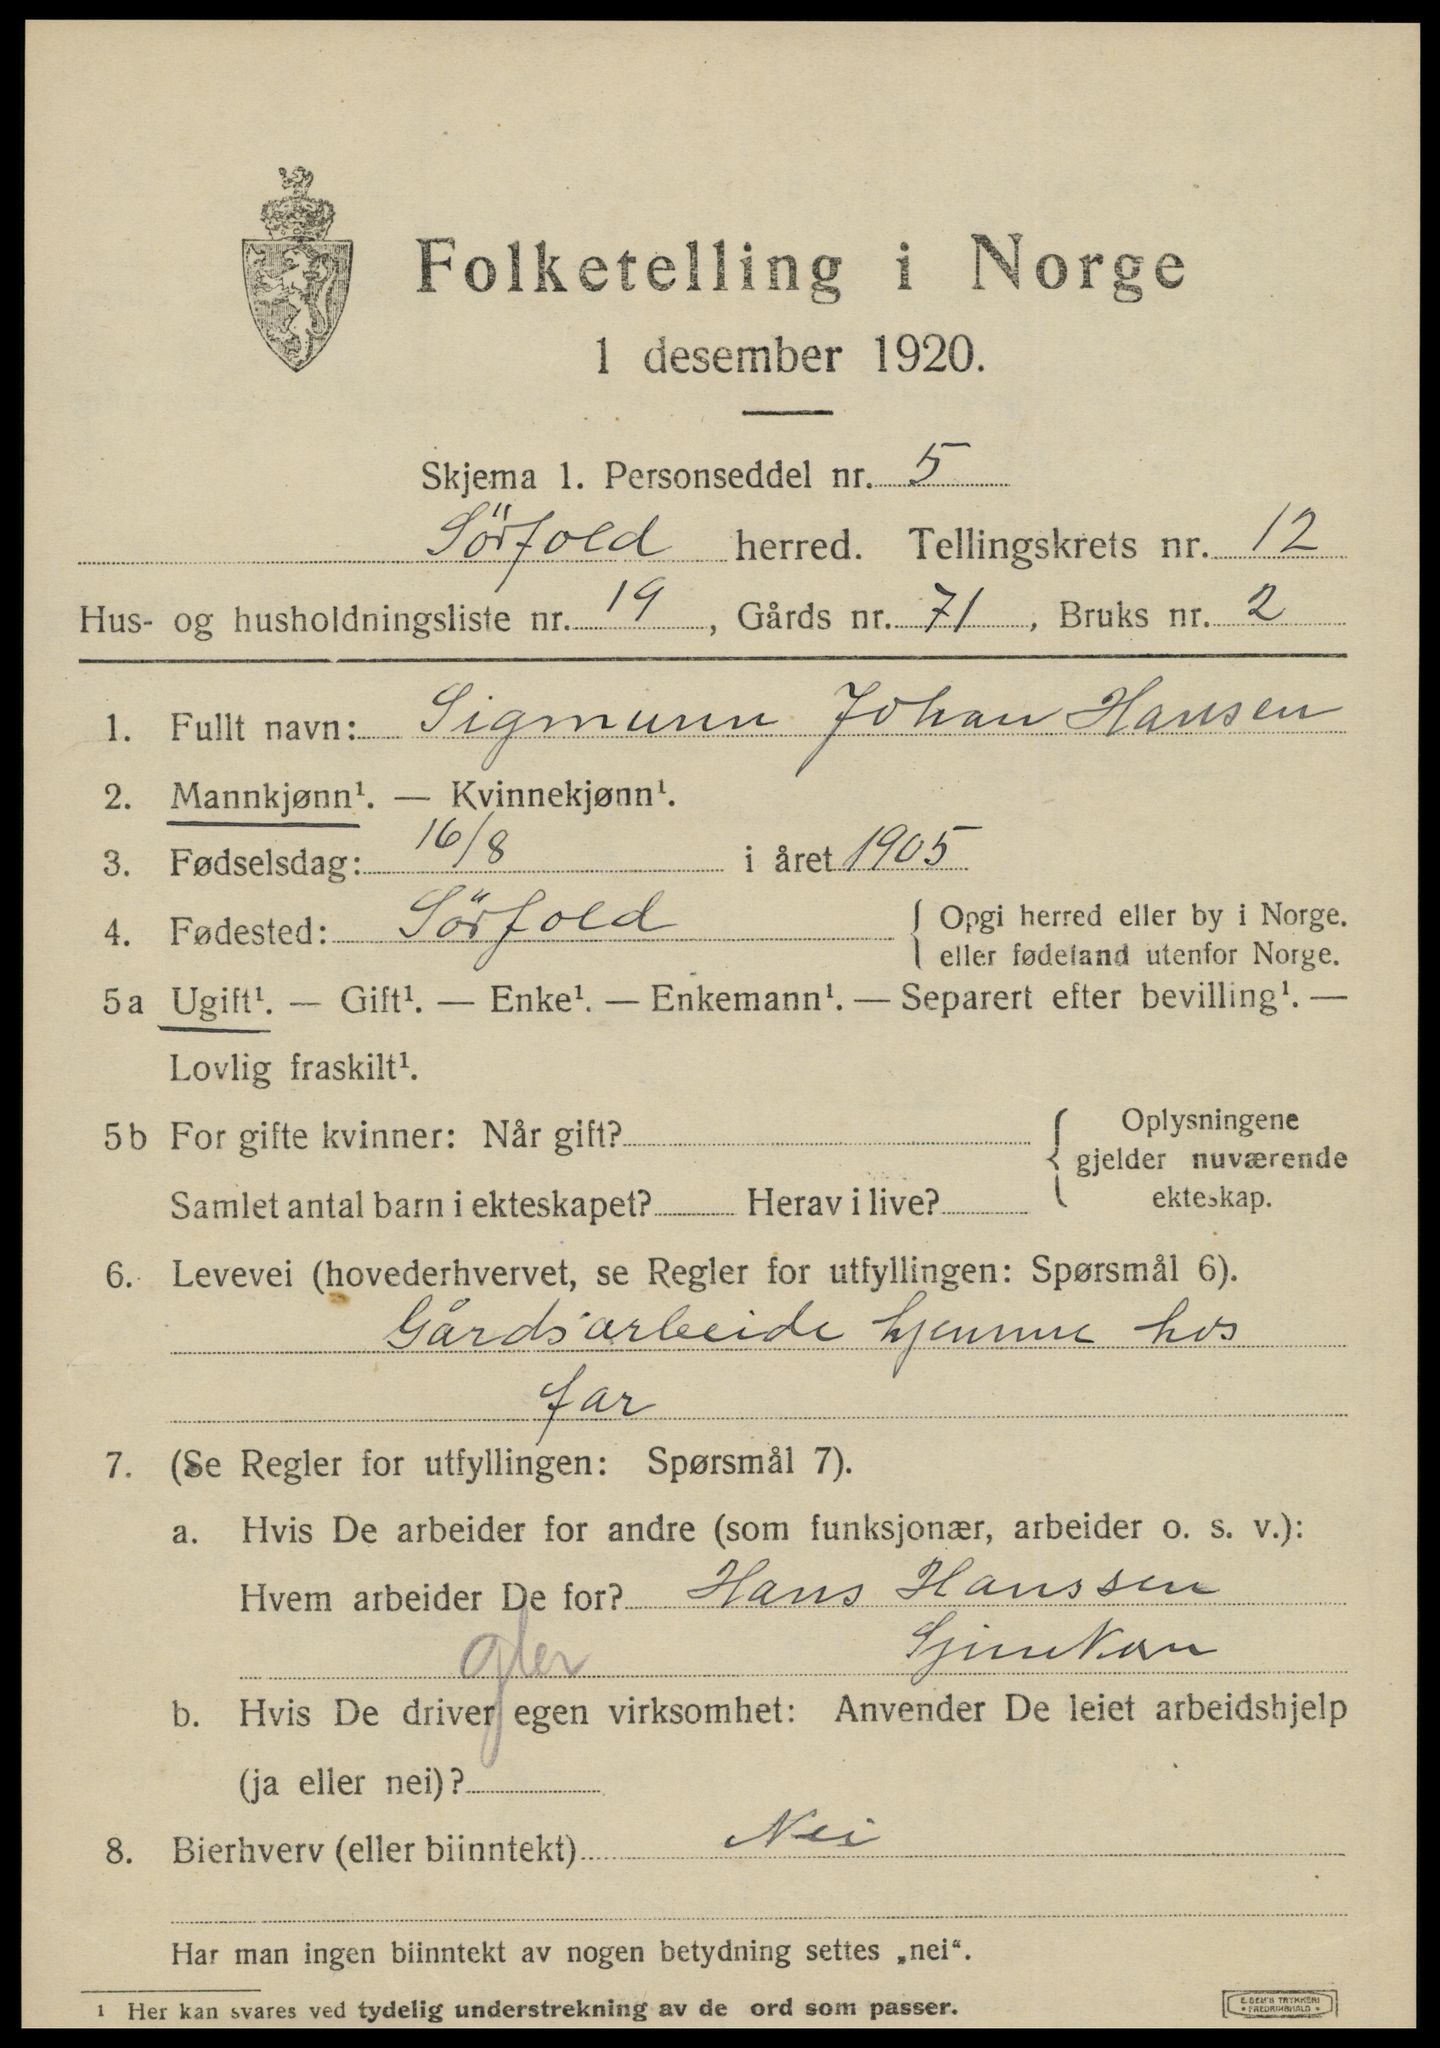 Folketelling i Norge
1 desember 1920.
Skjema 1. Personseddel nr. 5
Sörfold herred. Tellingskrets nr. 12
Hus- og husholdningsliste nr. 19, Gårds nr. 71, Bruks nr. 2
1. Fullt navn: Sigmunn Johan Hansen
2. Mannkjønn¹. — Kvinnekjønn¹.
3. Fødselsdag: 16/8 i året 1905
4. Fødested: Sörfold { Opgi herred eller by i Norge.
eller fødeland utenfor Norge.
5a Ugift¹. — Gift¹. — Enke¹. — Enkemann¹. — Separert efter bevilling¹. —
Lovlig fraskilt¹.
5b For gifte kvinner: Når gift? { Oplysningene
gjelder nuværende
ekteskap.
Samlet antal barn i ekteskapet? Herav i live?
6. Levevei (hovederhvervet, se Regler for utfyllingen: Spørsmål 6).
Gårdsarbeide hjemme hos
far
7. (Se Regler for utfyllingen: Spørsmål 7).
a. Hvis De arbeider for andre (som funksjonær, arbeider o. s. v.):
Hvem arbeider De for? Hans Hanssen
b. Hvis De driver egen virksomhet: Anvender De leiet arbeidshjelp
(ja eller nei)?
8. Bierhverv (eller biinntekt) Nei
Har man ingen biinntekt av nogen betydning settes „nei“.
¹ Her kan svares ved tydelig understrekning av de ord som passer.